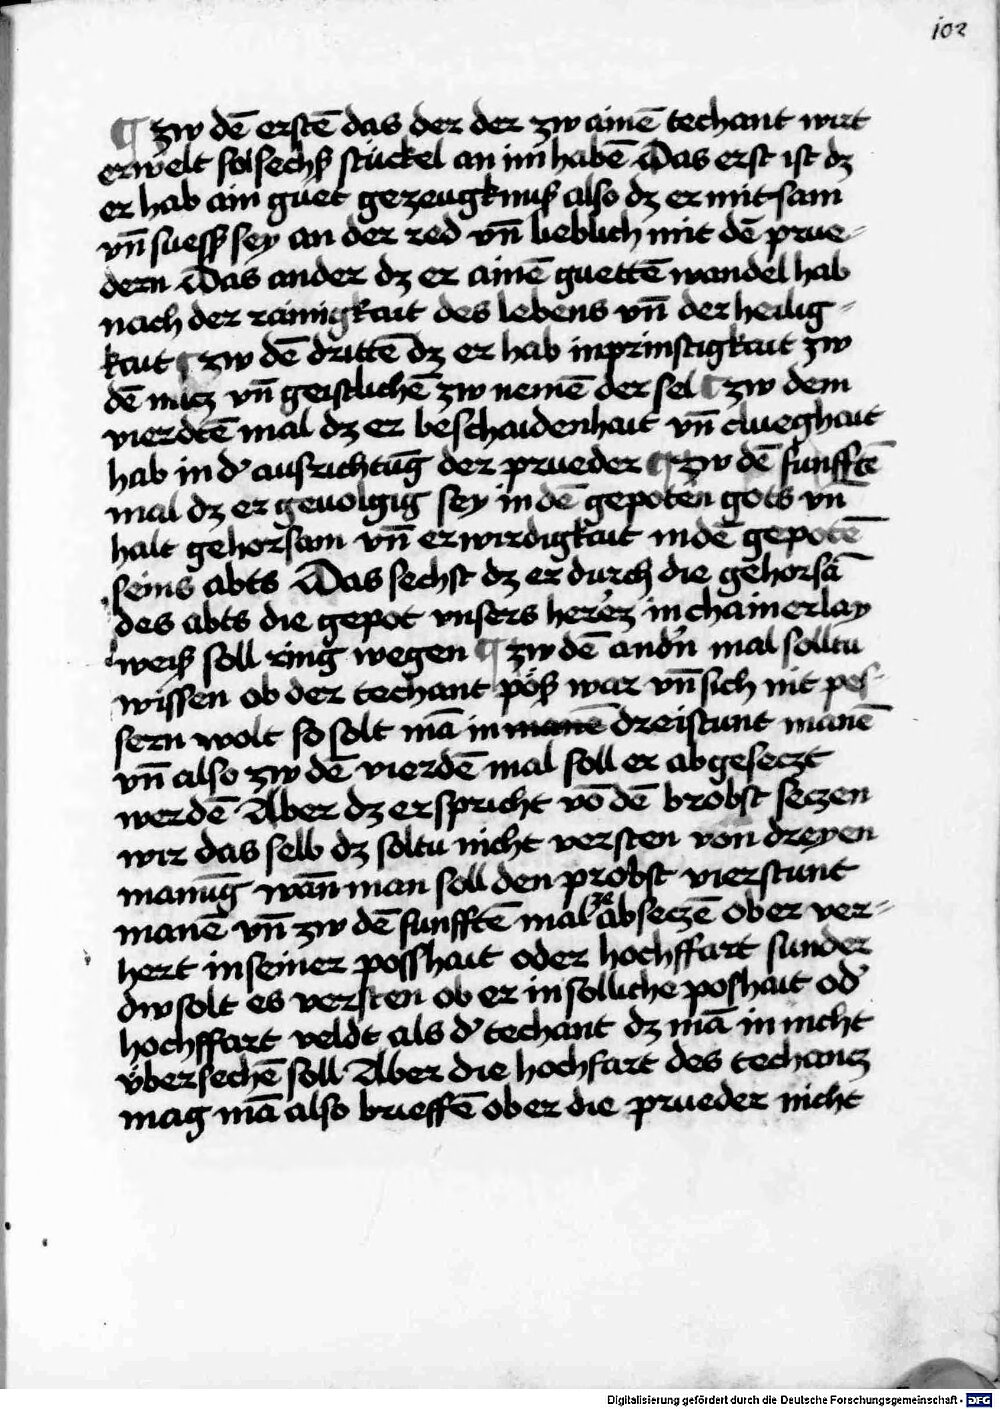 102
¶ zw dē erstē das der der zw ainē techant wirt
erwelt sol sechs stückel an im habē Das erst ist dz
er hab ain guet gezeugknuß also dz er mitsam
vn̄ suess sey an der red vn̄ lieblich mit dē prue-
dern Das ander dz er ainē guettē wandel hab
nach der rainigkait des lebens vn̄ der heilig-
kait ¶ zw dē drittē dz er hab inprinstigkait zw
dē nucz vn̄ geistlichē zw nemē der sel ¶ zw dem
vierdtē mal dz er beschaidenhait vn̄ clueghait
hab in d' ausrichtūg der prueder ¶ zw dē funfftē
mal dz er geuolgig sey in dē gepoten gots vn̄
halt gehorsam vn̄ erwirdigkait in dē gepotē
seins abts Das sechst dz er durch die gehorsā
des abts die gepot vnsers herez in chainerlay
weiß soll ring wegen ¶ zw dē andn̄ mal solltu
wissen ob der techant pöß war vn̄ sich nit pes-
sern wolt so solt mā in manē dreistunt manē
vn̄ also zw dē vierdē mal soll er abgeseczt
werdē Aber dz er spricht vō dē brobst seczen
wir das selb dz soltu nicht versten von dreyen
manūg wān man soll den probst vierstunt
manē vn̄ zw dē funfftē mal ze abseczē ober ver-
hert in seiner posshait oder hochffart sunder
dw solt es versten ob er in solliche poshait od'
hochffart veldt als d' techant dz mā in nicht
vbersechē soll Aber die hochfart des techancz
mag mā also brieffē ober die prueder nicht
Digitalisierung gefördert durch die Deutsche Forschungsgemeinschaft - DFG